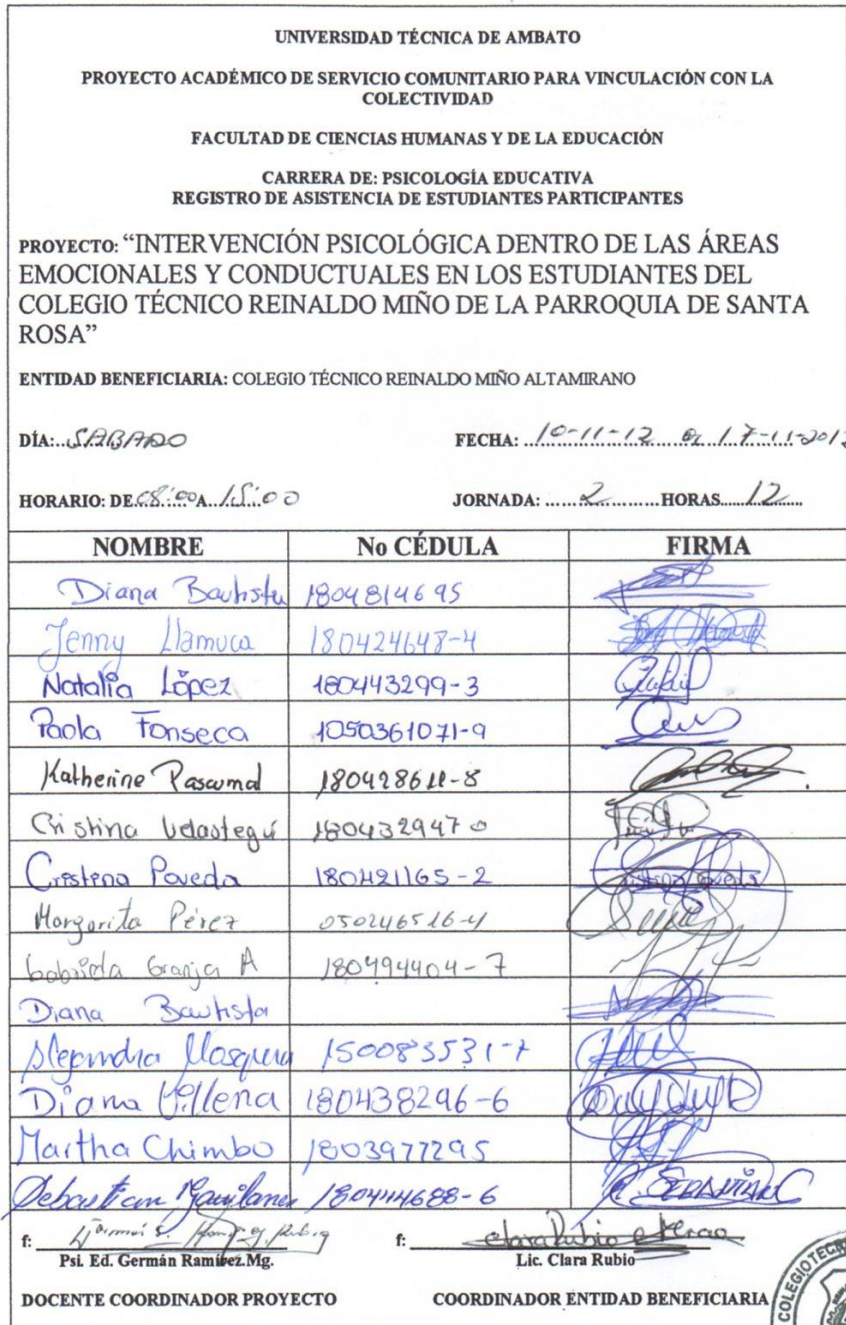 UNIVERSIDAD TÉCNICA DE AMBATO
PROYECTO ACADÉMICO DE SERVICIO COMUNITARIO PARA VINCULACIÓN CON LA
COLECTIVIDAD
FACULTAD DE CIENCIAS HUMANAS Y DE LA EDUCACIÓN
CARRERA DE: PSICOLOGÍA EDUCATIVA
REGISTRO DE ASISTENCIA DE ESTUDIANTES PARTICIPANTES
PROYECTO: “INTERVENCIÓN PSICOLÓGICA DENTRO DE LAS ÁREAS
EMOCIONALES Y CONDUCTUALES EN LOS ESTUDIANTES DEL
COLEGIO TÉCNICO REINALDO MIÑO DE LA PARROQUIA DE SANTA
ROSA”
ENTIDAD BENEFICIARIA: COLEGIO TÉCNICO REINALDO MIÑO ALTAMIRANO
DÍA: SABADO FECHA: 10-11-12 a 17-11-2012
HORARIO: DE 08:00 A 15:00 JORNADA: 2 HORAS 12
NOMBRE No CÉDULA FIRMA
Diana Bautista 1804814695
Jenny Llamuca 180424648-4
Natalia López 180443299-3
Paola Fonseca 1050361071-9
Katherine 180428611-8
Cristina Velastegui 180432947-0
Cristina Poveda 180421165-2
Margarita Pérez 050246516-4
Gabriela Granja A 180494404-7
Diana Bautista
Alejandra Mosquera 150083531-7
Diana Villena 180438296-6
Martha Chimbo 1803977295
Sebastian 180444688-6 SEBASTIAN C
f: f: Clara Rubio
Psi. Ed. Germán Ramírez.Mg. Lic. Clara Rubio
DOCENTE COORDINADOR PROYECTO COORDINADOR ENTIDAD BENEFICIARIA